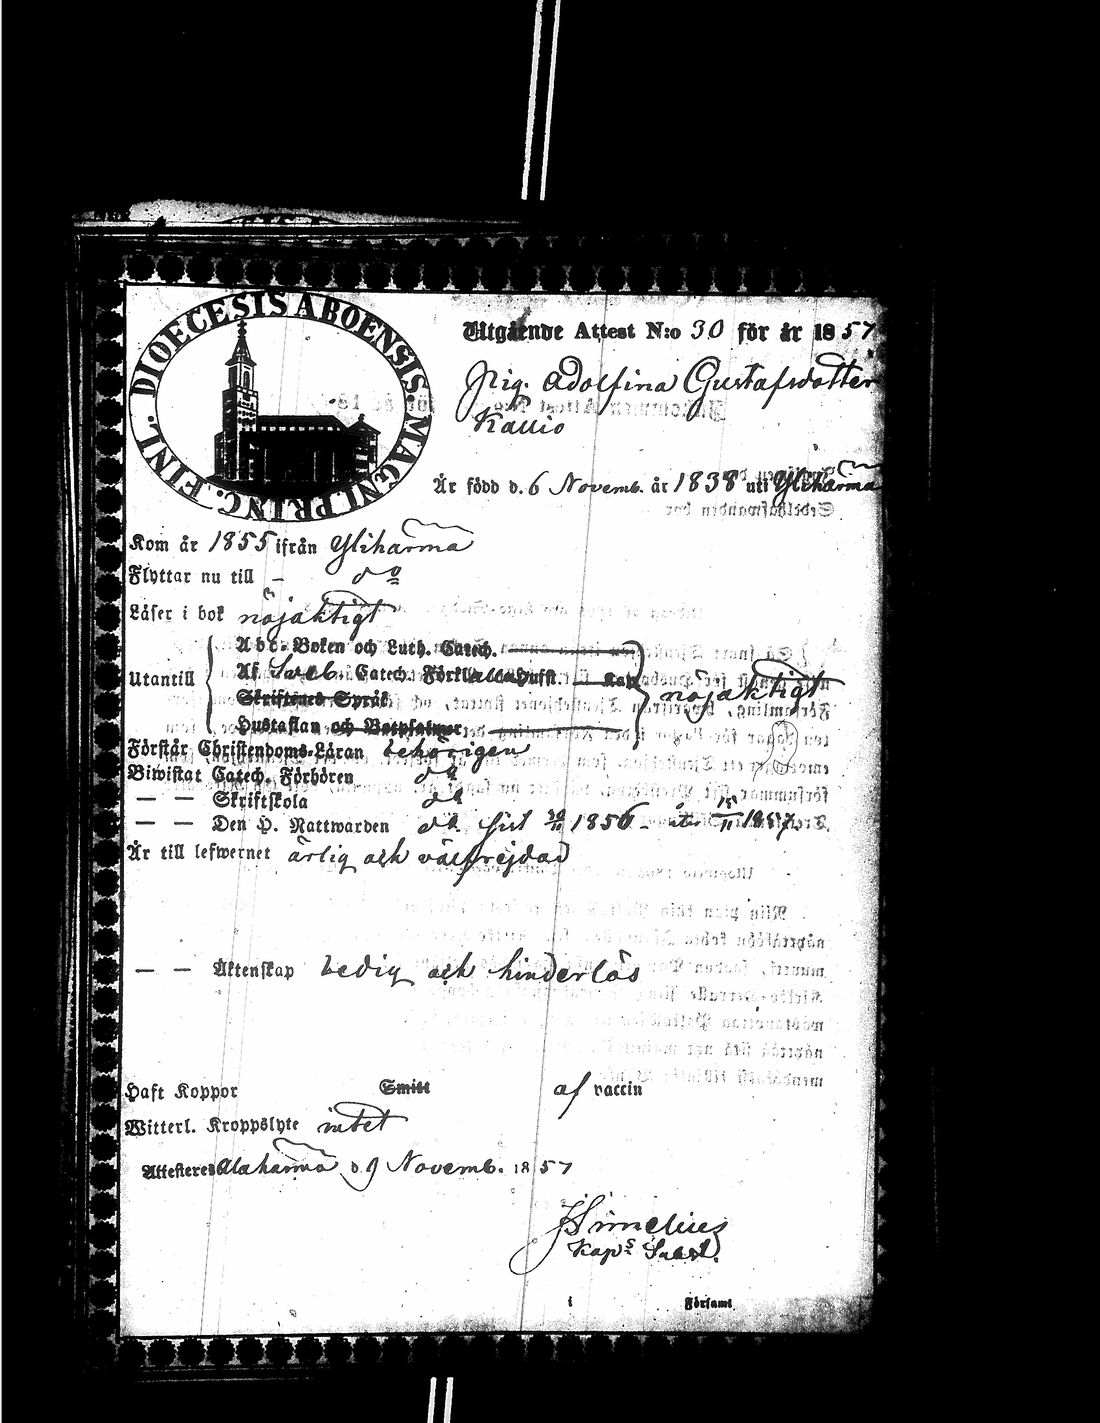 DIOECESIS ABOENSIS. MAGNI PRINC. FINL.
Utgående Attest N:o 30 för år 1857
Pig. Adolfina Gustafsdotter
Kallio
Är född d. 6 Novemb. år 1838 uti Ylihärmä
Kom år 1855 ifrån Ylihärmä
Flyttar nu till — do
Läser i bok nöjaktigt
Abc-Boken och Luth. Catech.
Utantill Af Sveb. Catech. Förkl.
Skriftenes Språk nöjaktigt
Hustaflan och Botpsalmer
Förstår Christendoms-Läran behörigen
Biwistat Catech. Förhören do
— — Skriftskola do
— — Den H. Nattwarden do sist 1856 15/11 1857
Är till lefwernet ärlig och välfrejdad
— — Äktenskap ledig och hinderlös
Haft Koppor Smitt af vaccin
Witterl. Kroppslyte intet
Attesteres Alahärmä d. 9 Novemb. 1857
JSimelius
Kaps Subst.
i Församl.